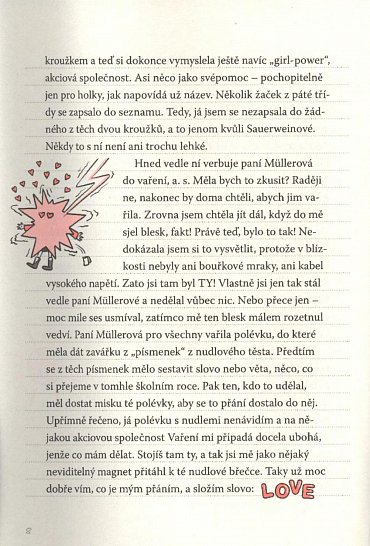 kroužkem a teď si dokonce vymyslela ještě navíc „girl-power“,
akciová společnost. Asi něco jako svépomoc – pochopitelně
jen pro holky, jak napovídá už název. Několik žaček z páté tří-
dy se zapsalo do seznamu. Tedy, já jsem se nezapsala do žád-
ného z těch dvou kroužků, a to jenom kvůli Sauerweinové.
Někdy to s ní není ani trochu lehké.
Hned vedle ní verbuje paní Müllerová
do vaření, a. s. Měla bych to zkusit? Raději
ne, nakonec by doma chtěli, abych jim va-
řila. Zrovna jsem chtěla jít dál, když do mě
sjel blesk, fakt! Právě teď, bylo to tak! Ne-
dokázala jsem si to vysvětlit, protože v blíz-
kosti nebyly ani bouřkové mraky, ani kabel
vysokého napětí. Zato jsi tam byl TY! Vlastně jsi jen tak stál
vedle paní Müllerové a nedělal vůbec nic. Nebo přece jen –
moc mile ses usmíval, zatímco mě ten blesk málem rozetnul
vedví. Paní Müllerová pro všechny vařila polévku, do které
měla dát zavářku z „písmenek“ z nudlového těsta. Předtím
se z těch písmenek mělo sestavit slovo nebo věta, něco, co
si přejeme v tomhle školním roce. Pak ten, kdo to udělal,
měl dostat misku té polévky, aby se to přání dostalo do něj.
Upřímně řečeno, já polévku s nudlemi nenávidím a na ně-
jakou akciovou společnost Vaření mi připadá docela ubohá,
jenže co mám dělat. Stojíš tam ty, a tak jsi mě jako nějaký
neviditelný magnet přitáhl k té nudlové břečce. Taky už moc
dobře vím, co je mým přáním, a složím slovo: LOVE
8